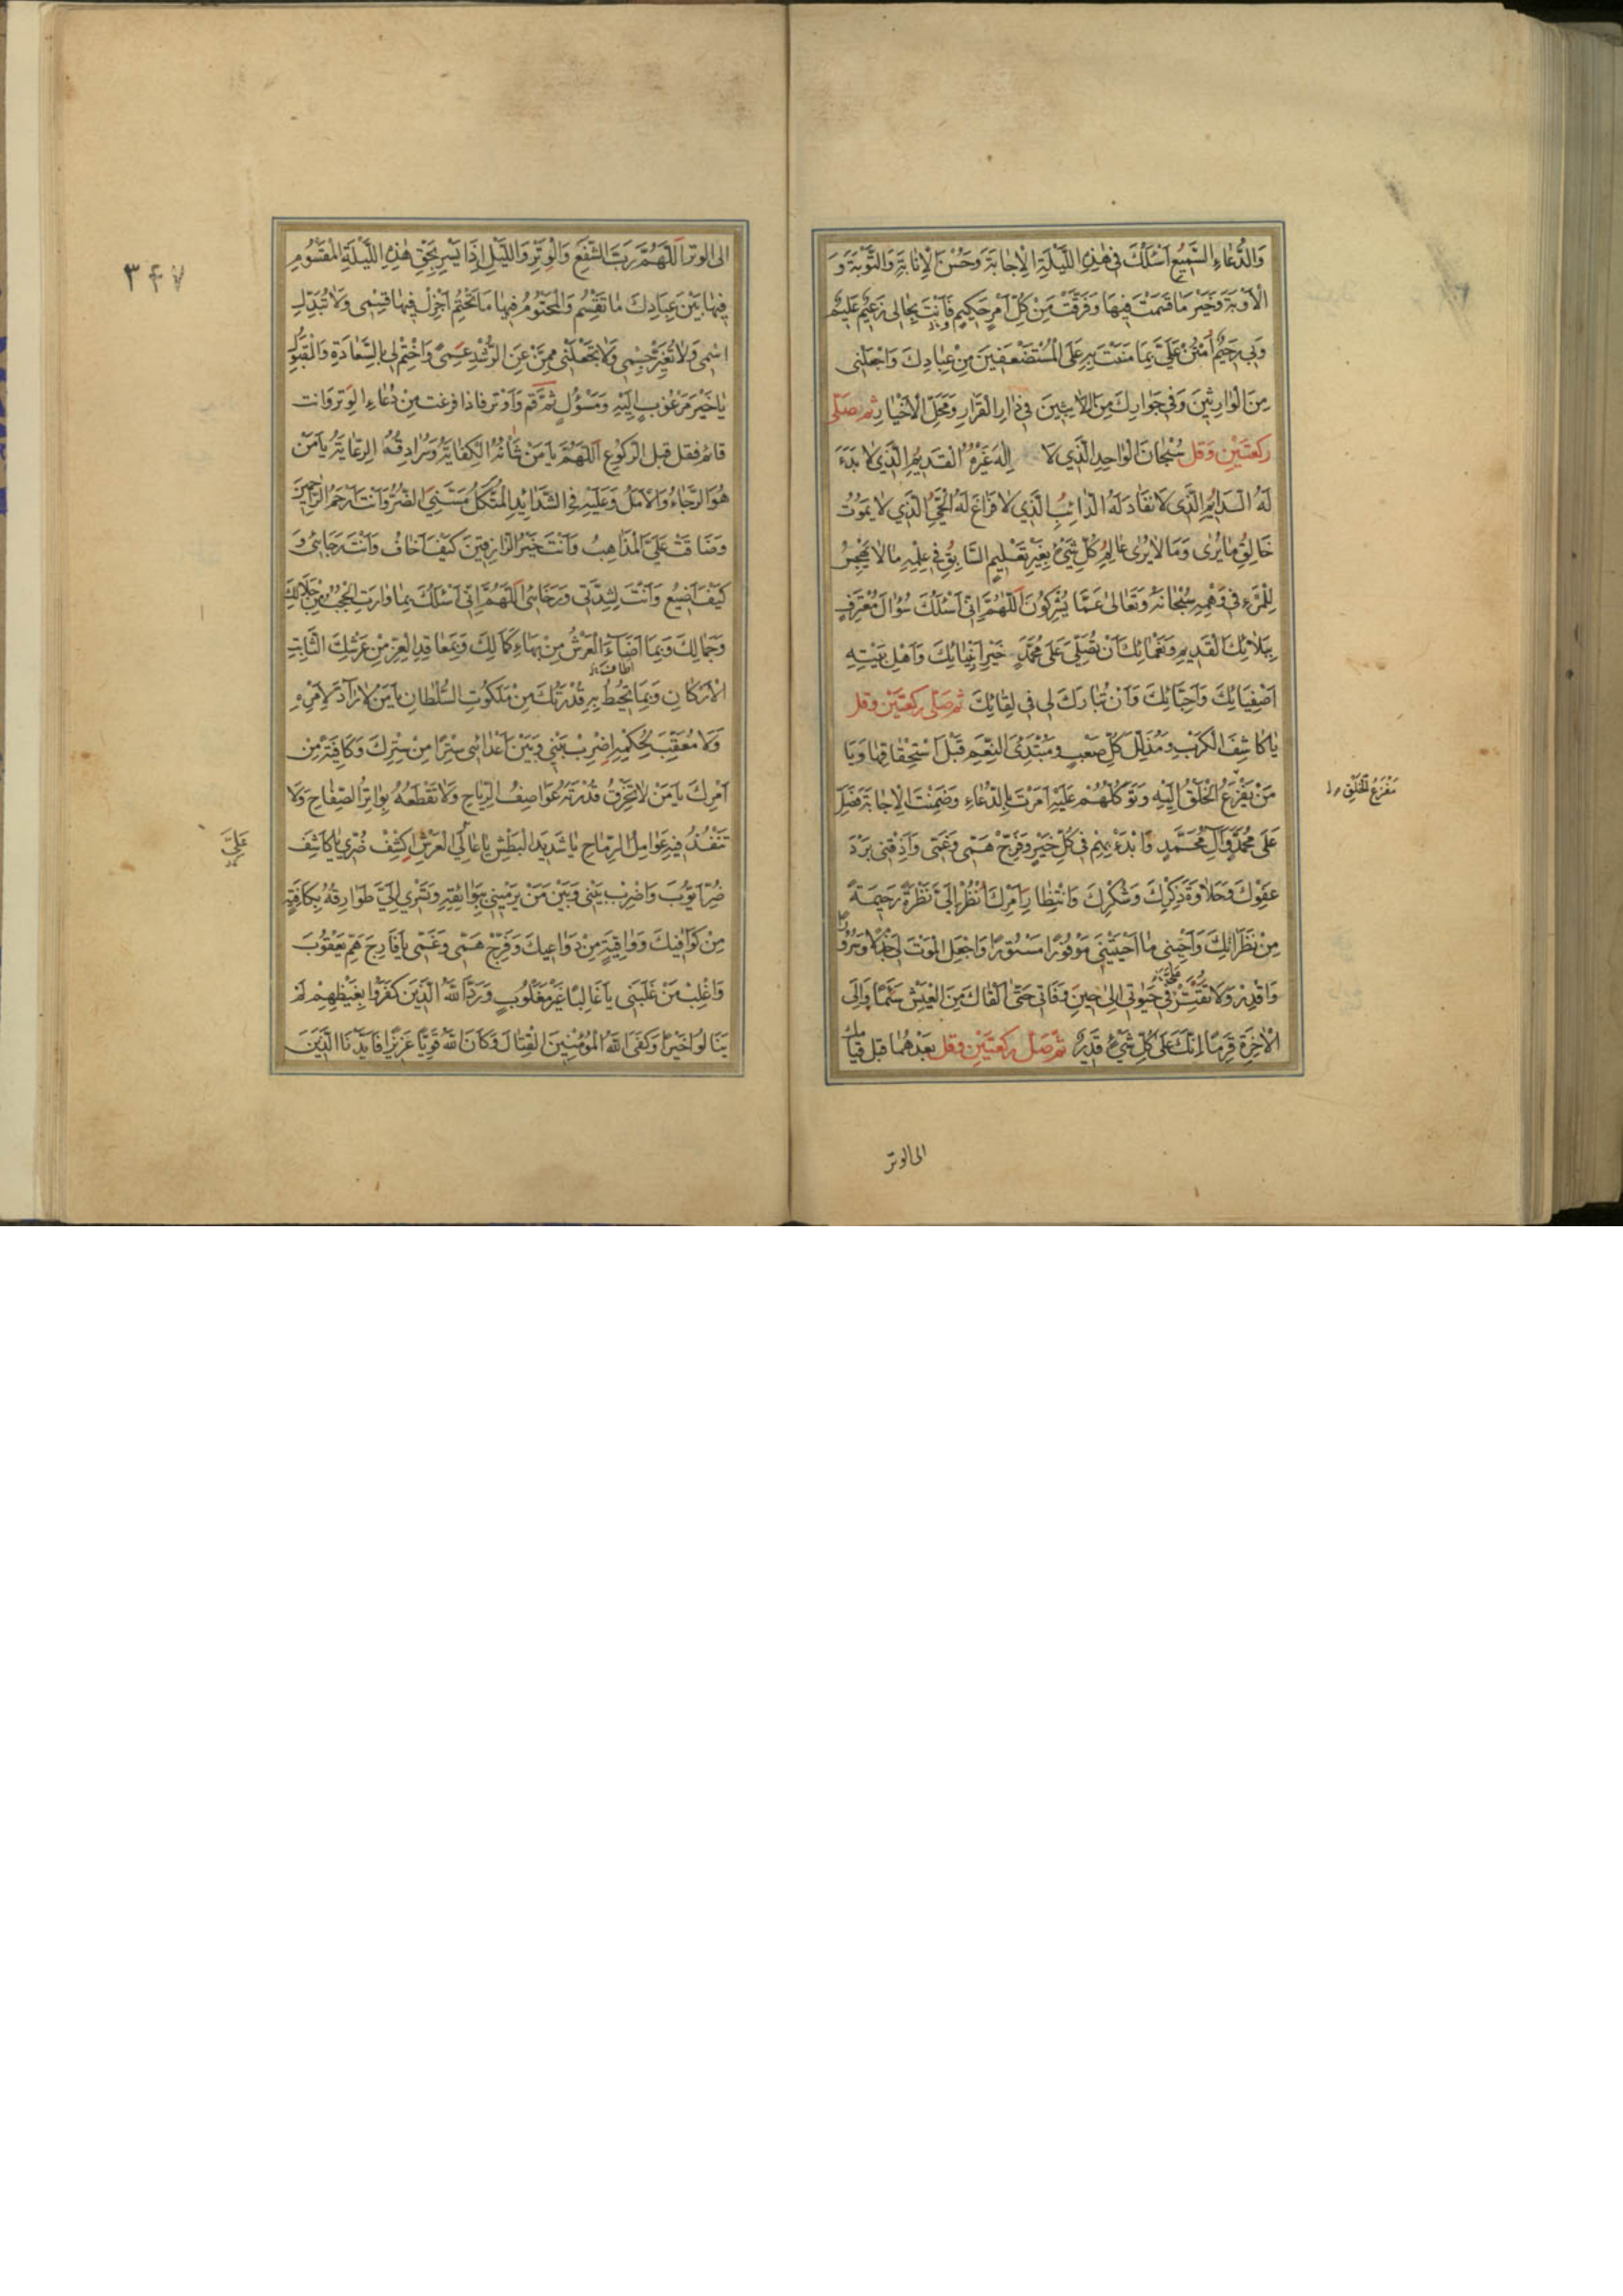 وَالدُّعَاءِ السَّمِيعُ أَسْئَلُكَ فِي هٰذِهِ اللَّيْلَةِ الْإِجَابَةَ وَحُسْنَ الْإِنَابَةِ وَالتَّوْبَةَ وَ
الْأَوْبَةَ وَخَيْرَ مَا قَسَمْتَ فِيهَا وَفَرَقْتَ مِنْ كُلِّ أَمْرٍ حَكِيمٍ فَأَنْتَ بِحَالِي زَعِيمٌ عَلِيمٌ
وَبِي رَحِيمٌ أُمْنُنْ عَلَيَّ بِمَا مَنَنْتَ بِهِ عَلَى الْمُسْتَضْعَفِينَ مِنْ عِبَادِكَ وَاجْعَلْنِي
مِنَ الْوَارِثِينَ وَفِي جِوَارِكَ مِنَ اللَّابِثِينَ فِي دَارِ الْقَرَارِ وَمَحَلِّ الْأَخْيَارِ ثم صَلِّ
رَكْعَتَيْنِ وَقُل سُبْحَانَ الْوَاحِدِ الَّذِي لَا إِلٰهَ غَيْرُهُ الْقَدِيمِ الَّذِي لَا بَدْءَ
لَهُ الدَّايِمِ الَّذِي لَا نَفَادَ لَهُ الدَّائِبِ الَّذِي لَا فَرَاغَ لَهُ الْحَيِّ الَّذِي لَا يَمُوتُ
خَالِقِ مَا يُرٰى وَمَا لَا يُرٰى عَالِمِ كُلِّ شَيْءٍ بِغَيْرِ تَعْلِيمٍ السَّابِقِ فِي عِلْمِهِ مَا لَا يَهْجُسُ
لِلْمَرْءِ فِي وَهْمِهِ سُبْحَانَهُ وَتَعَالٰى عَمَّا يُشْرِكُونَ اَللّٰهُمَّ إِنِّي أَسْئَلُكَ سُؤَالَ مُعْتَرِفٍ
بِبَلَائِكَ الْقَدِيمِ وَنَعْمَائِكَ أَنْ تُصَلِّيَ عَلَى مُحَمَّدٍ خَيْرِ أَنْبِيَائِكَ وَأَهْلِ بَيْتِهِ
أَصْفِيَائِكَ وَأَحِبَّائِكَ وَأَنْ تُبَارِكَ لِي فِي لِقَائِكَ ثم صَلِّ رَكْعَتَيْنِ وقل
يَا كَاشِفَ الْكَرْبِ وَمُذَلِّلَ كُلِّ صَعْبٍ وَمُبْتَدِئَ النِّعَمِ قَبْلَ اسْتِحْقَاقِهَا وَيَا
مَنْ يَفْزَعُ الْخَلْقُ إِلَيْهِ وَتَوَكُّلُهُمْ عَلَيْهِ أَمَرْتَ بِالدُّعَاءِ وَضَمِنْتَ الْإِجَابَةَ فَصَلِّ
مَفْزَعُ الْخَلْقِ
عَلَى مُحَمَّدٍ وَآلِ مُحَمَّدٍ وَابْدَءْ بِهِمْ فِي كُلِّ خَيْرٍ وَفَرِّجْ هَمِّي وَغَمِّي وَأَذِقْنِي بَرْدَ
عَفْوِكَ وَحَلَاوَةَ ذِكْرِكَ وَشُكْرِكَ وَانْتِظَارِ أَمْرِكَ اُنْظُرْ إِلَيَّ نَظْرَةً رَحِيمَةً
مِنْ نَظَرَاتِكَ وَأَحْيِنِي مَا أَحْيَيْتَنِي مَوْفُورًا مَسْتُورًا وَاجْعَلِ الْمَوْتَ لِي جَذَلًا وَسُرُورًا
وَاقْدِرْ وَلَا تُقَتِّرْ فِي حَيٰوتِي إِلٰى حِينِ وَفَاتِي حَتّٰى أَلْقَاكَ مِنَ الْعَيْشِ سَئِمًا وَإِلَى
الْاٰخِرَةِ قَرِمًا إِنَّكَ عَلٰى كُلِّ شَيْءٍ قَدِيرٌ ثم صَلِّ رَكْعَتَيْنِ وقل بَعْدَهُمَا قَبْلَ قِيَامِكَ
الى الوتر
٣٤٧
الى الوتر اَللّٰهُمَّ رَبَّ الشَّفْعِ وَالْوَتْرِ وَاللَّيْلِ إِذَا يَسْرِ بِحَقِّ هٰذِهِ اللَّيْلَةِ الْمَقْسُومِ
فِيهَا بَيْنَ عِبَادِكَ مَا تَقْسِمُ وَالْمَحْتُومِ فِيهَا مَا تَحْتِمُ أَجْزِلْ فِيهَا قِسْمِي وَلَا تُبَدِّلِ
اسْمِي وَلَا تُغَيِّرْ جِسْمِي وَلَا تَجْعَلْنِي مِمَّنْ عَنِ الرُّشْدِ عَمِيَ وَاخْتِمْ لِي بِالسَّعَادَةِ وَالْقَبُولِ
يَا خَيْرَ مَرْغُوبٍ إِلَيْهِ وَمَسْؤُلٍ ثُمَّ قُمْ وَأَوْتِرْ فاذا فرغت مِنْ دُعَاءِ الْوَتْرِ وَانت
قائم فقل قبل الركوع اَللّٰهُمَّ يَا مَنْ شَأْنُهُ الْكِفَايَةُ وَسُرَادِقُهُ الرِّعَايَةُ يَا مَنْ
هُوَ الرَّجَاءُ وَالْأَمَلُ وَعَلَيْهِ فِي الشَّدَايِدِ الْمُتَّكَلُ مَسَّنِيَ الضُّرُّ وَأَنْتَ أَرْحَمُ الرَّاحِمِينَ
وَضَاقَتْ عَلَيَّ الْمَذَاهِبُ وَأَنْتَ خَيْرُ الرَّازِقِينَ كَيْفَ أَخَافُ وَأَنْتَ رَجَائِي وَ
كَيْفَ أَضِيعُ وَأَنْتَ لِشِدَّتِي وَرَخَائِي اَللّٰهُمَّ إِنِّي أَسْئَلُكَ بِمَا وَارَتِ الْحُجُبُ مِنْ جَلَالِكَ
وَجَمَالِكَ وَبِمَا أَضَاءَ الْعَرْشُ مِنْ بَهَاءِ كَمَالِكَ وَبِمَعَاقِدِ الْعِزِّ مِنْ عَرْشِكَ الثَّابِتِ
الْأَرْكَانِ وَبِمَا تُحِيطُ بِهِ قُدْرَتُكَ مِنْ مَلَكُوتِ السُّلْطَانِ يَا مَنْ لَا رَادَّ لِأَمْرِهِ
وَلَا مُعَقِّبَ لِحُكْمِهِ اِضْرِبْ بَيْنِي وَبَيْنَ أَعْدَائِي سِتْرًا مِنْ سِتْرِكَ وَكَافِيَةً مِنْ
أَمْرِكَ يَا مَنْ لَا تَخْرِقُ قُدْرَتَهُ عَوَاصِفُ الرِّيَاحِ وَلَا تَقْطَعُهُ بَوَاتِرُ الصِّفَاحِ وَلَا
تَنْفُذُ فِيهِ عَوَامِلُ الرِّمَاحِ يَا شَدِيدَ الْبَطْشِ يَا عَالِيَ الْعَرْشِ اِكْشِفْ ضُرِّي يَا كَاشِفَ
عَلِيَّ
ضُرِّ أَيُّوبَ وَاضْرِبْ بَيْنِي وَبَيْنَ مَنْ يَرْمِينِي بِبَوَائِقِهِ وَتَسْرِي إِلَيَّ طَوَارِقُهُ بِكَافِيَةٍ
مِنْ كَوَافِيكَ وَوَاقِيَةٍ مِنْ دَوَاعِيكَ وَفَرِّجْ هَمِّي وَغَمِّي يَا فَارِجَ هَمِّ يَعْقُوبَ
وَاغْلِبْ مَنْ غَلَبَنِي يَا غَالِبًا غَيْرَ مَغْلُوبٍ وَرَدَّ اللّٰهُ الَّذِينَ كَفَرُوا بِغَيْظِهِمْ لَمْ
يَنَالُوا خَيْرًا وَكَفَى اللّٰهُ الْمُؤْمِنِينَ الْقِتَالَ وَكَانَ اللّٰهُ قَوِيًّا عَزِيزًا فَأَيَّدْنَا الَّذِينَ